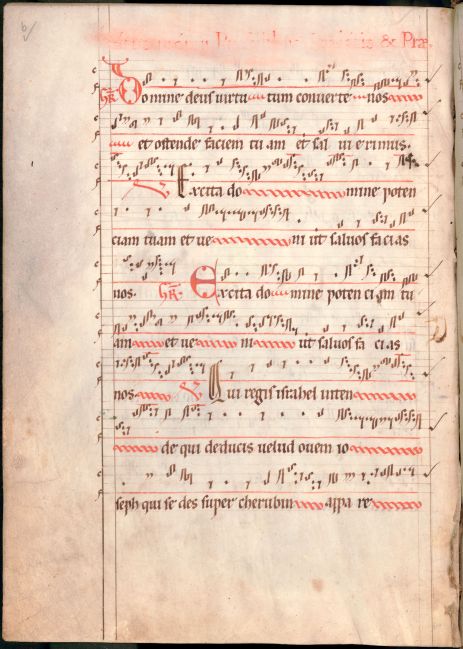 & Præ
GR Domine deus uirtutum conuerte nos
et ostende faciem tuam et salui erimus.
V Excita domine poten
ciam tuam et ueni ut saluos facias
nos. GR. Excita domine potenciam tu
am et ueni ut saluos facias
nos V Qui regis israhel inten
de qui deducis uelud ouem io
seph qui sedes super cherubin appare